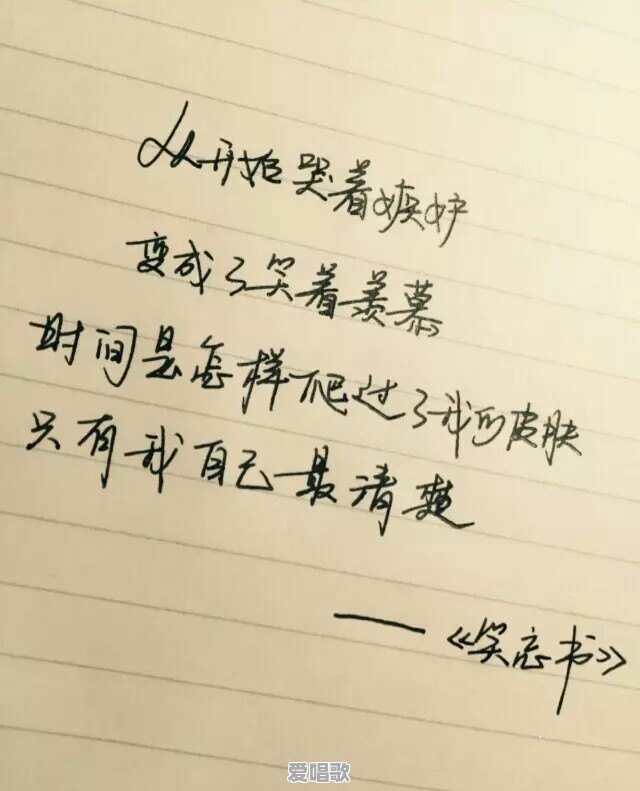 从开始哭着嫉妒
变成了笑着羡慕
时间是怎样爬过了我的皮肤
只有我自己最清楚
——《笑忘书》
爱唱歌